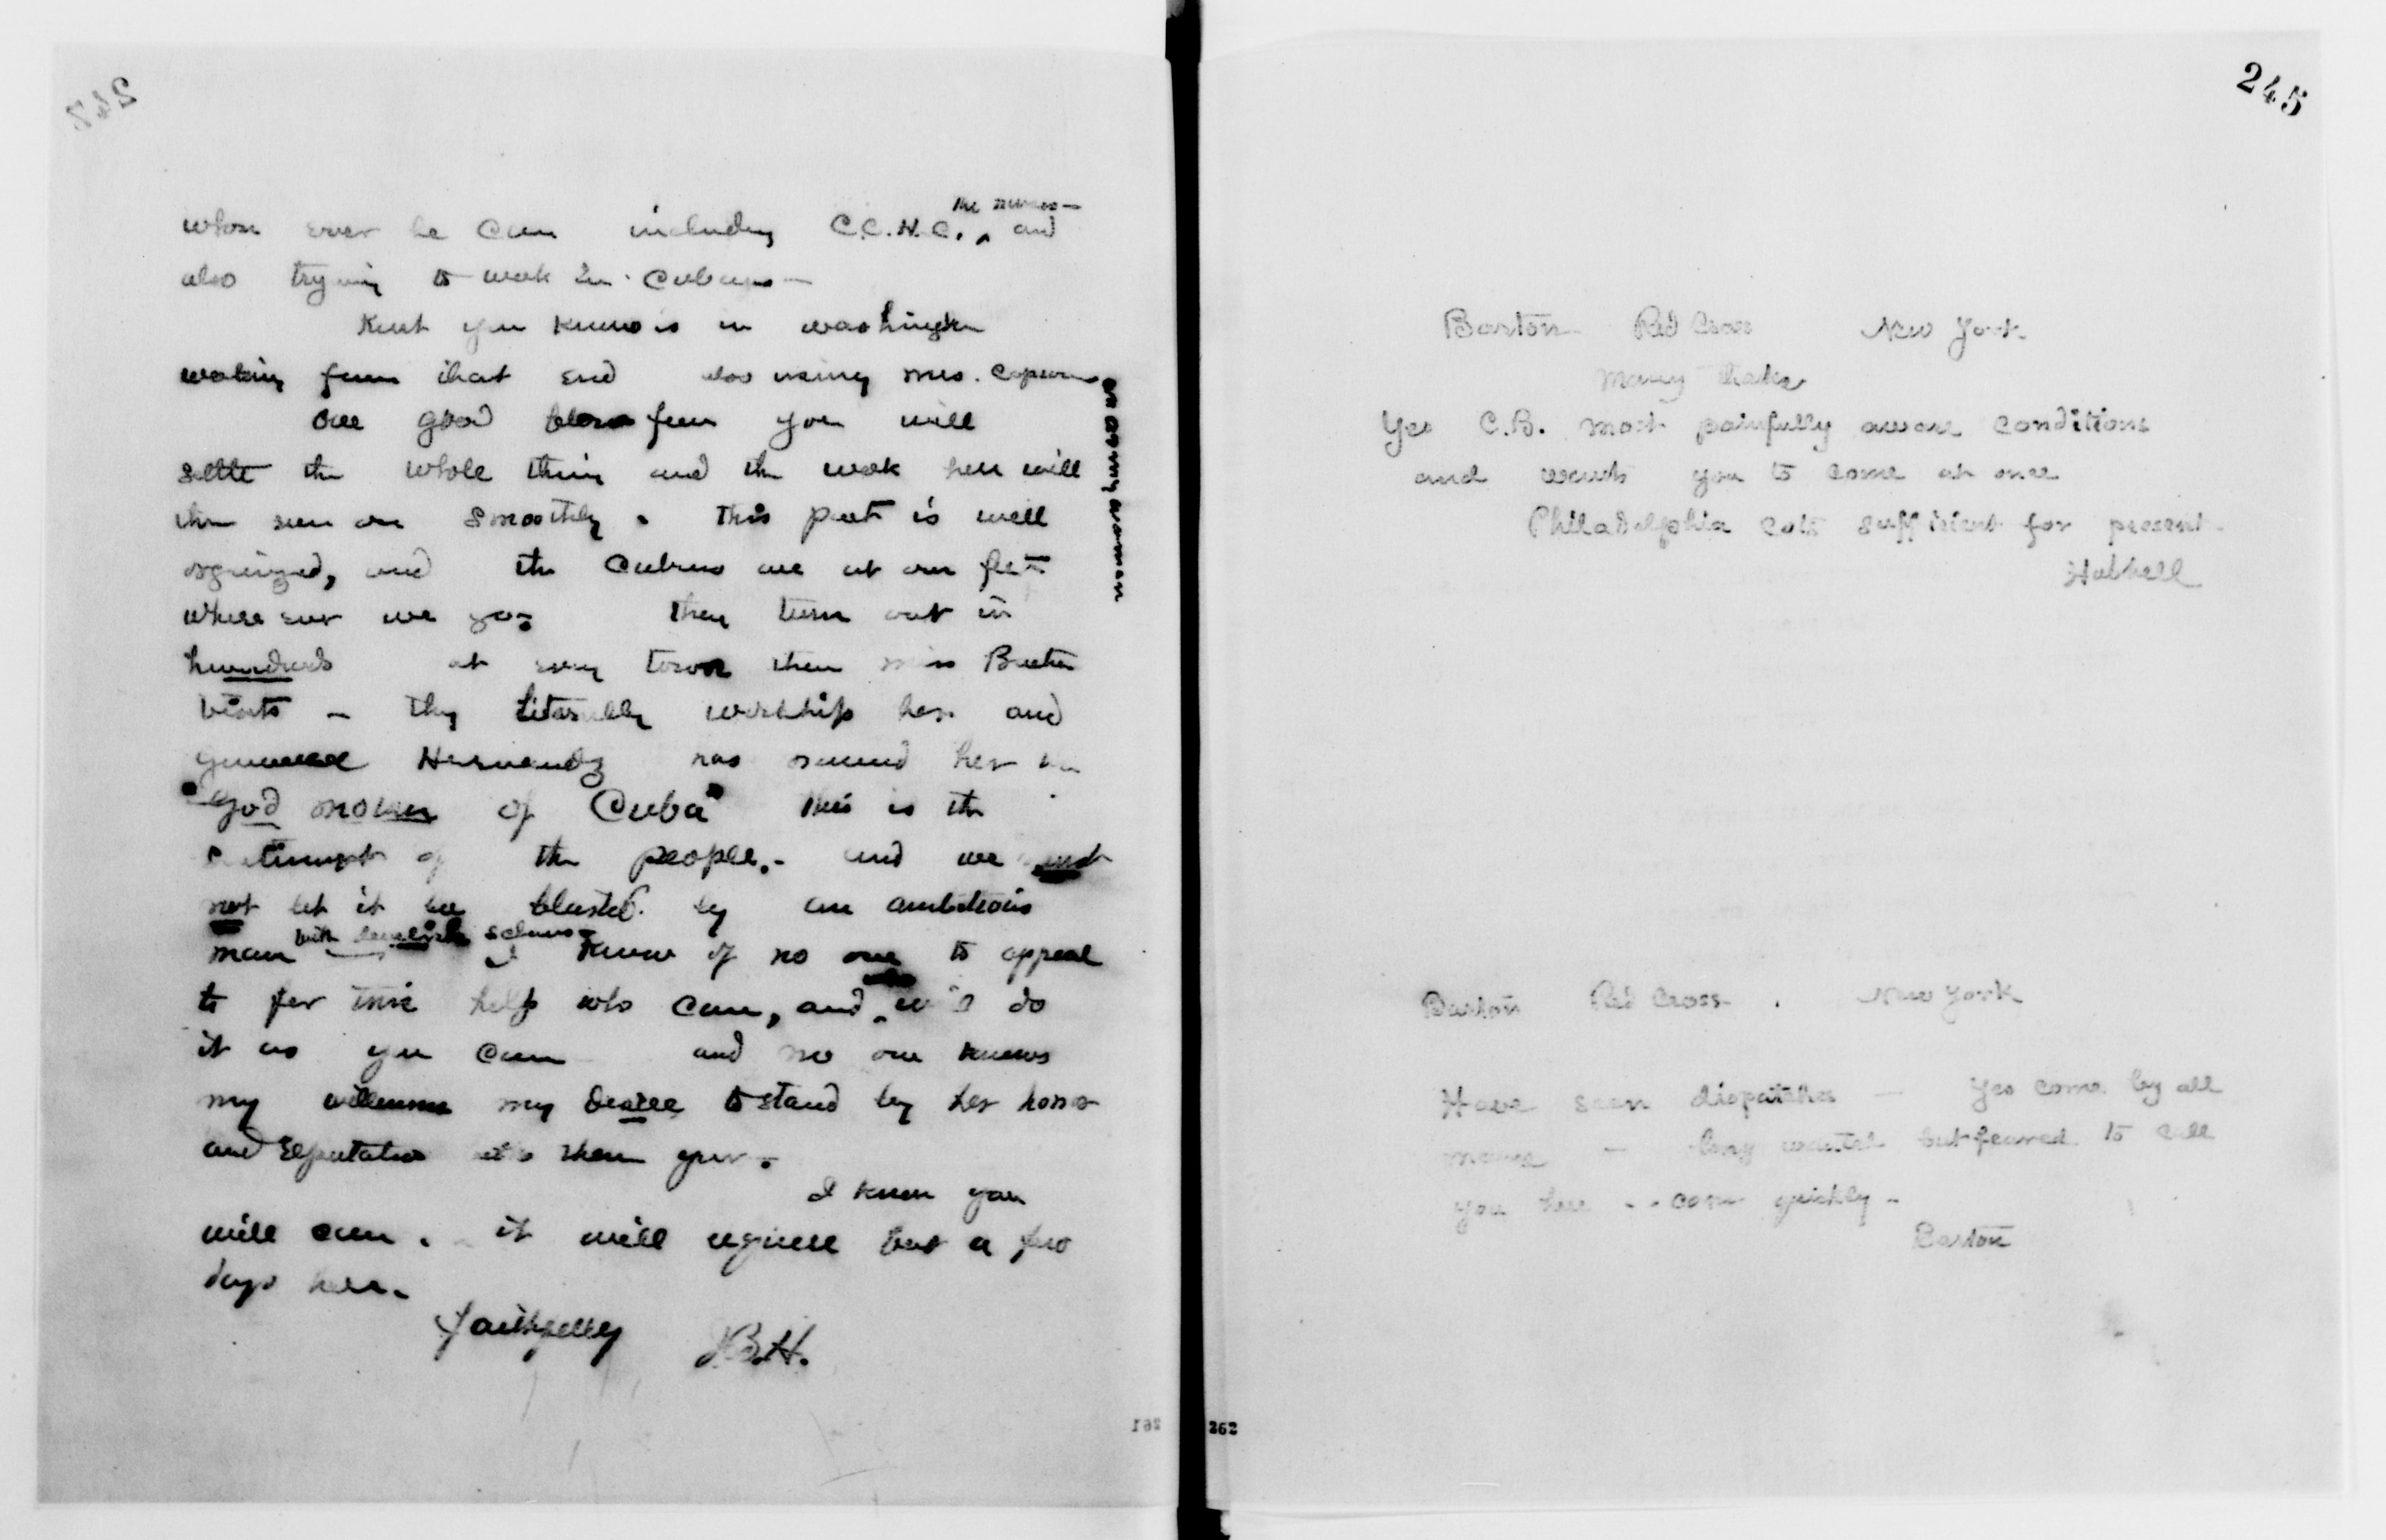 247
whom ever he can including C.C.H.C., the nurses — and
also trying to work the Cubans —
Kent you know is in Washington
working from that end also using Mrs.
an army woman
One good blow from you will
settle the whole thing and the work here will
then run on smoothly. This part is well
organized, and the Cubans are at our feet
where ever we go. they turn out in
hundreds at every town then Miss Barton
visits — They literally worship her and
General Hernandez has named her the
"God mother of Cuba" this is the
sentiment of the people. — and we must
not let it be blasted by an ambitious
man with devilish schemes — I know of no one to appeal
to for this help who can, and who will do
it as you can and no one knows
my willingness my desire to stand by her honor
and reputation then you.
I know you
will come. it will require but a few
days here.
Faithfully J.B.H.
261
245
Barton Red Cross New York
Many thanks
Yes C.B. most painfully aware conditions
and wants you to come at once
Philadelphia cots sufficient for present.
Hubbell
Barton Red Cross. New York
Have seen dispatches — Yes come by all
means — long wanted but feared to call
you here — come quickly —
Barton
262